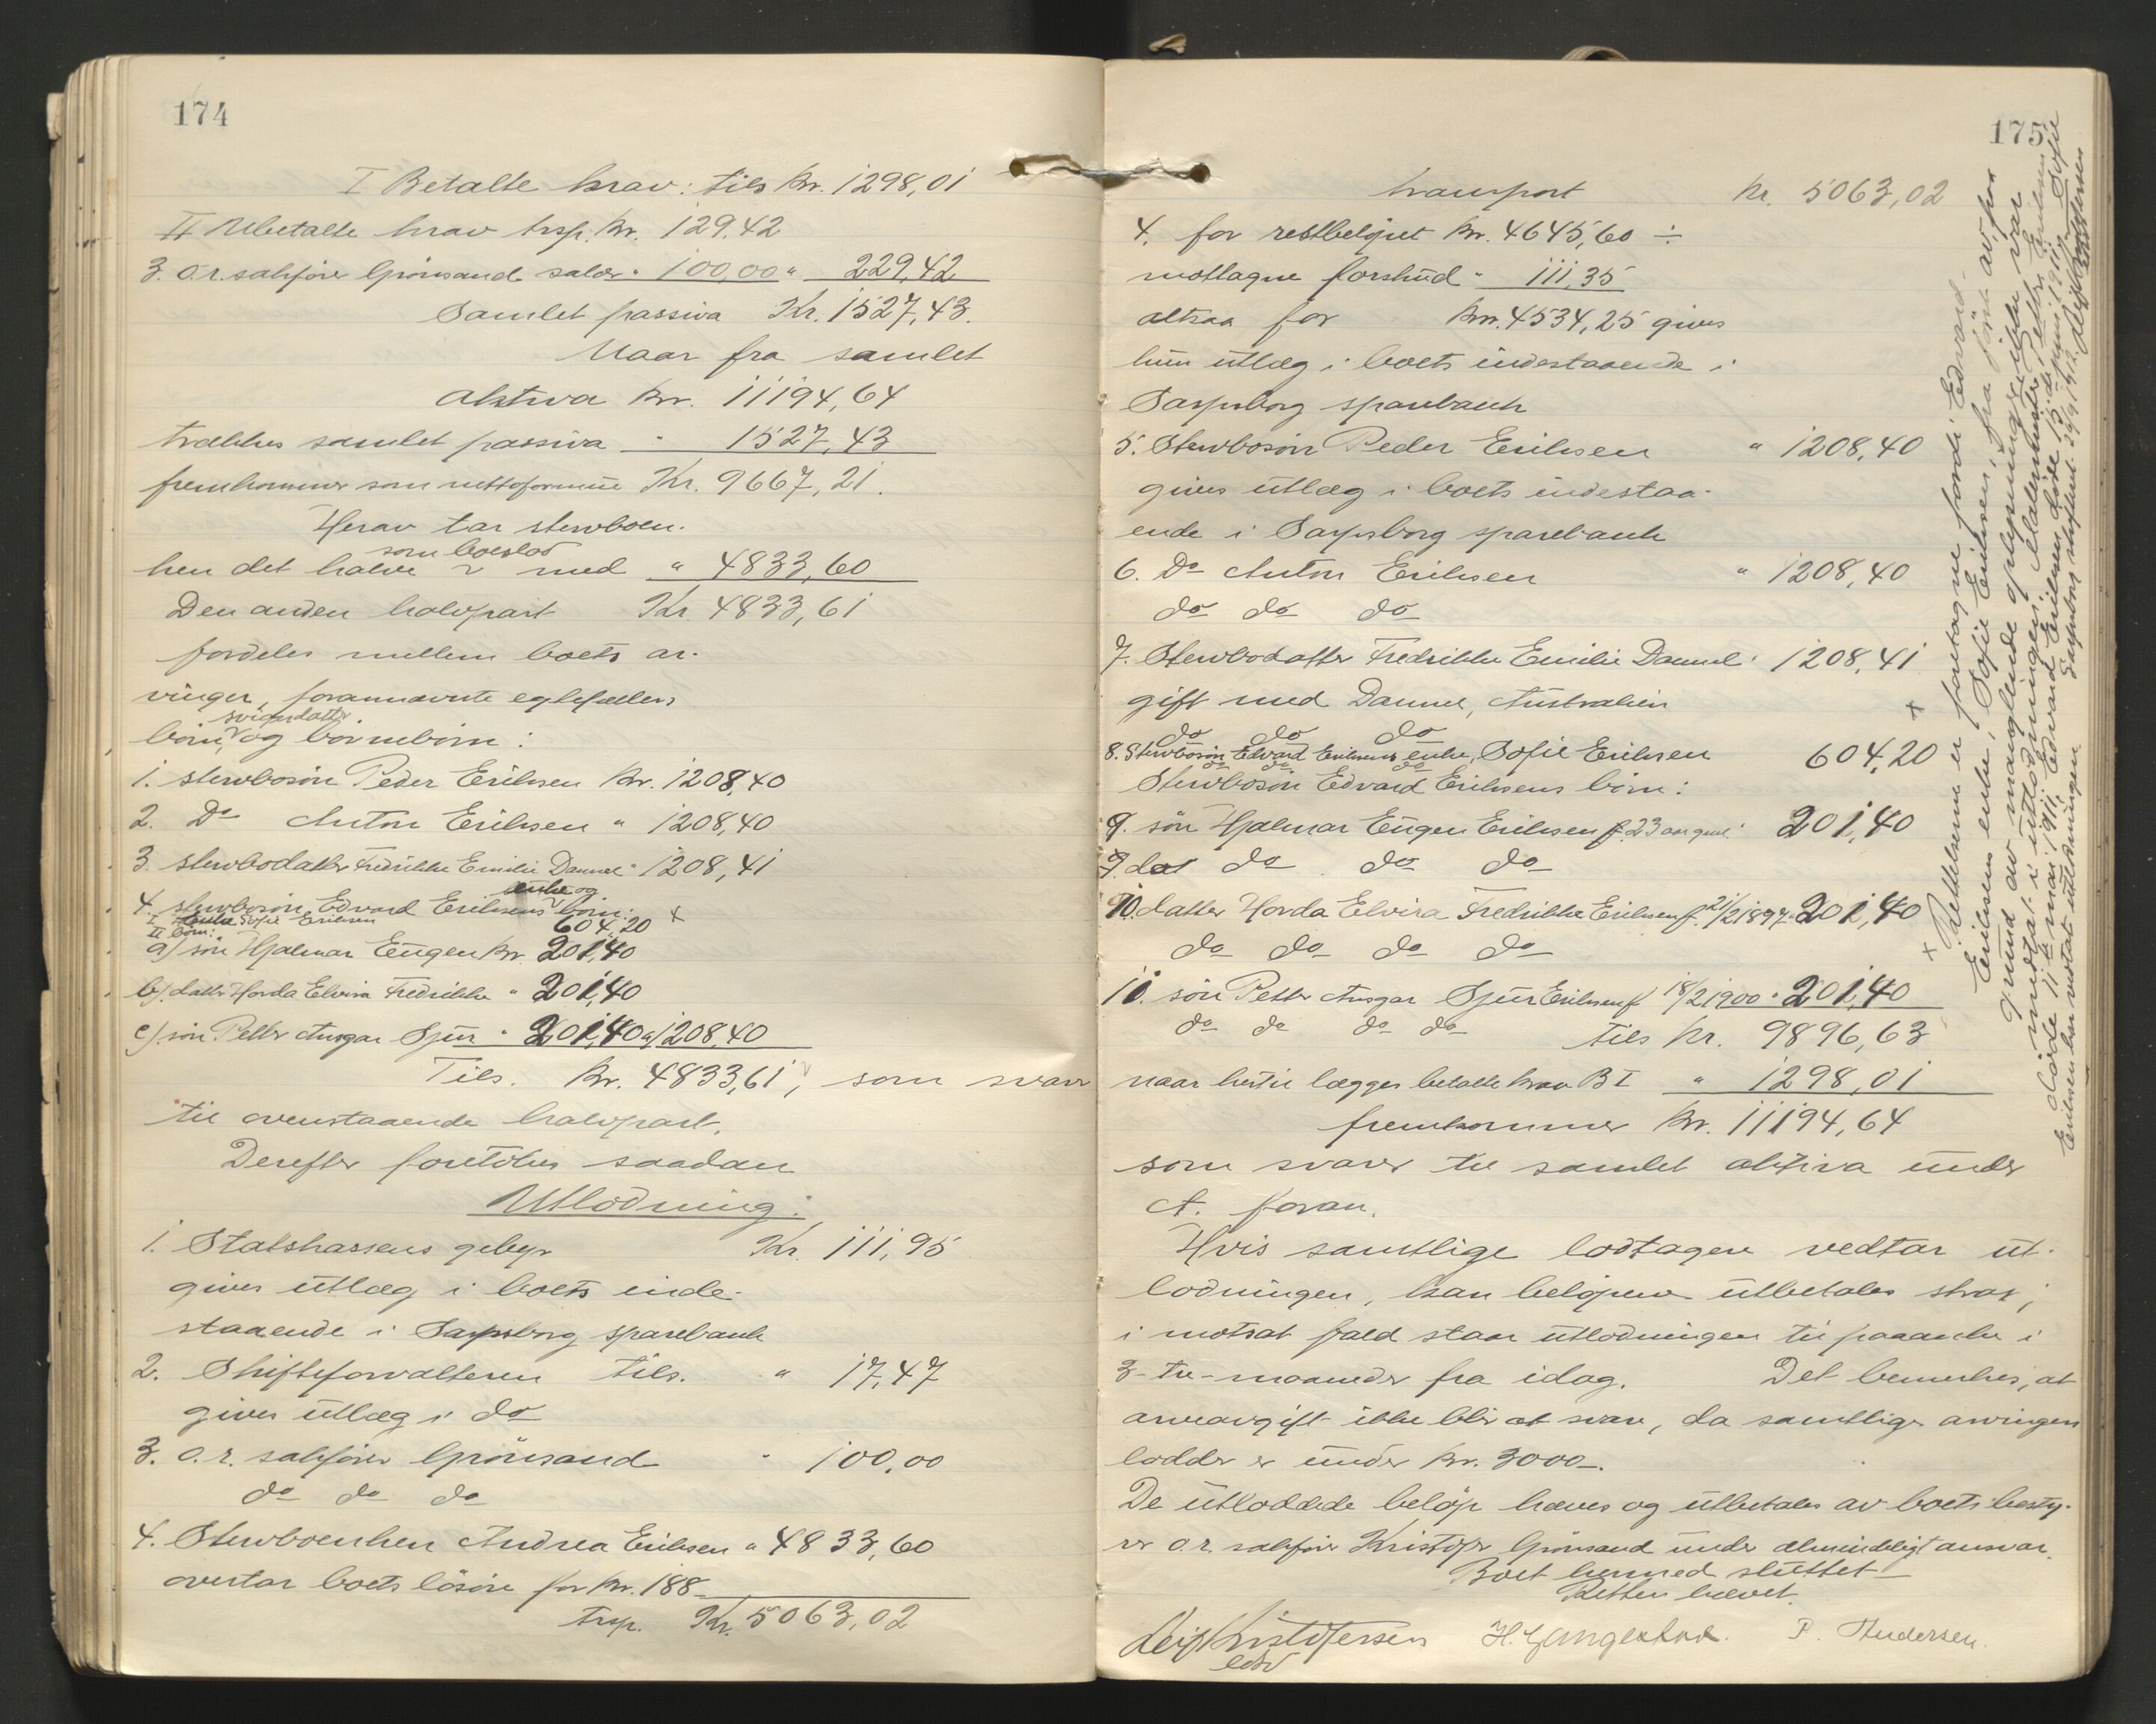 174
I Betalte krav: tils kr. 1298,01
II Ubetalte krav trsp. kr. 129.42
3. o.r. sakfører Grönsand salær " 100,00 " 229,42
Samlet passiva Kr. 1527,43.
Naar fra samlet
aktiva kr. 11194,64
trækkes samlet passiva " 1527,43
fremkommer som nettoformue Kr. 9667,21.
Herav tar stervboen-
som boeslod
ken det halve med " 4833,60
Den anden halvpart Kr. 4833,61
fordeles mellem boets ar-
vinger, forannævnte egtefællers
svigerdatter
börn, og börnebörn:
1. stervbosön Peder Eriksen kr. 1208,40
2. Do Anton Eriksen " 1208,40
3. stervbodatter Fredrikke Emilie Dannel " 1208,41
enke og
4. stervbosön Edvard Eriksens börn:
I Enke Sofie Eriksen 604,20 x
II börn:
a) sön Hjalmar Eugen kr. 201,40
b) datter Horda Elvira Fredrikke " 201,40
c) sön Petter Ansgar Spur " 201,40 " 1208,40
Tils. kr. 4833,61, som svarer
til ovenstaaende halvpart.
Derefter foretokes saadan
Utlodning:
1. Statskassens gebyr Kr. 111,95
gives utlæg i boets inde-
staaende i Sarpsborg sparebank
2. Skifteforvalteren tils. " 17,47
gives utlæg i do
3. o.r. sakfører Grönsand " 100,00
do do do
4. Stervboenken Andrea Eriksen " 4833,60
overtar boets lösöre for kr. 188-
trsp. Kr. 5063,02
175
transport kr. 5063,02
4. for restbelöpet kr. 4645,60 ÷
mottagne forskud " 111,35
altsaa for kr. 4534,25 gives
hun utlæg i boets indestaaende i
Sarpsborg sparebank
5. Stervbosön Peder Eriksen " 1208,40
gives utlæg i boets indestaa-
ende i Sarpsborg sparebank
6. Do Anton Eriksen " 1208,40
do do do
7. Stervbodatter Fredrikke Emilie Dannel " 1208,41
gift med Dannel, Australien
do do do
8. Stervbosön Edvard Eriksens enke, Sofie Eriksen 604,20 x
do do do
Stervbosön Edvard Eriksens börn:
9. sön Hjalmar Eugen Eriksen f. 23 aar gml " 201,40
do do do
10. datter Horda Elvira Fredrikke Eriksen f. 21/2 1897 " 201,40
do do do do
11. sön Petter Ansgar Spur Eriksen f 18/2 1900 " 201,40
do do do do tils kr. 9896,63
naar hertil lægges betalte krav B I " 1298,01
fremkommer kr. 11194,64
som svarer til samlet aktiva under
A. foran.
Hvis samtlige lodtagere vedtar ut-
lodningen, kan belöpene utbetales strax;
i motsat fald staar utlodningen til paaanke i
3-tre-maaneder fra idag. Det bemerkes, at
arveavgift ikke blir at svare, da samtlige arvingers
lodder er under kr. 3000-.
De utloddede belöp hæves og utbetales av boets besty-
rer o.r. sakfører Kristofer Grönsand under almindeligt ansvar.
Boet hermed sluttet
Retten hævet.
Leif Kristofersen H. Gangestad. P. Andersen.
edsv
x Rettelserne er foretagne fordi Edvard
Eriksens enke, Sofie Eriksen, fra först av, paa
grund av manglende oplysninger ikke var
medtat i utlodningen.
döde 11te mai 1911, Edvard Eriksen döde 13de juni 1911, Sofie
Eriksen har vedtat utlodningen Sarpsborg skifteret 29/9 1912. Leif Kristofersen
edsv